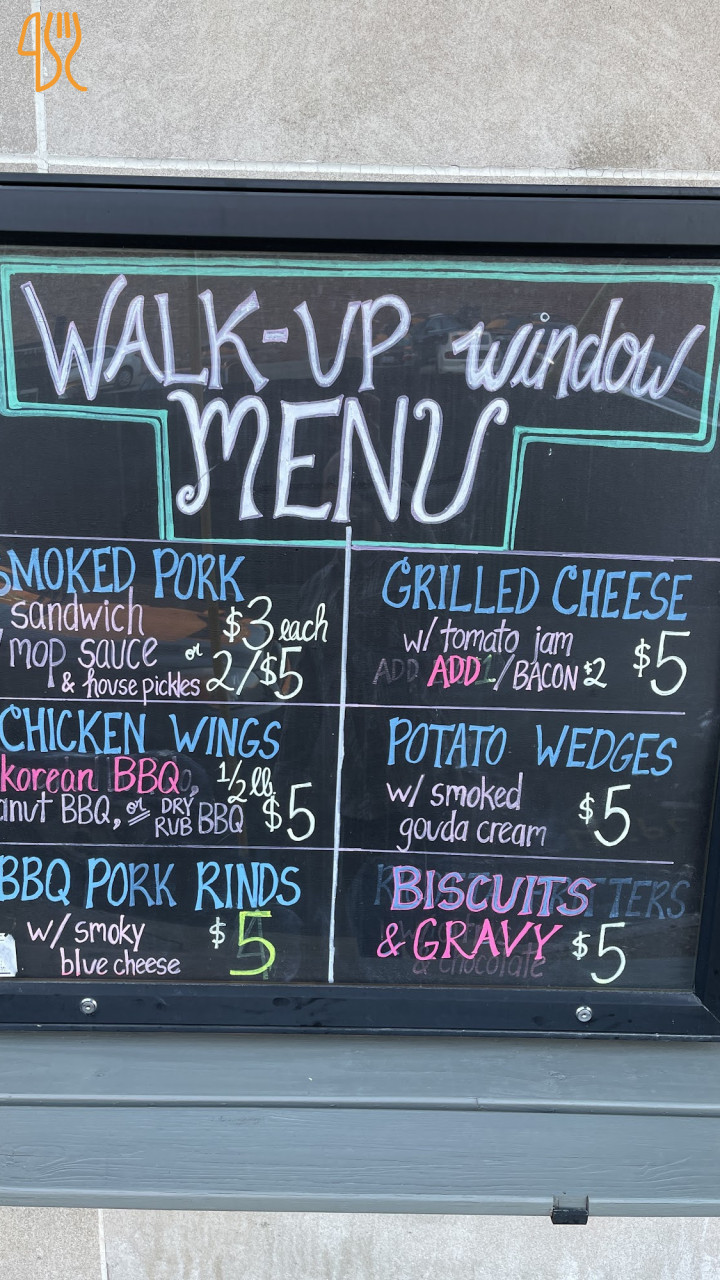 WALK-UP window
MENU
SMOKED PORK
sandwich
$3 each
mop sauce
or
2/$5
& house pickles
CHICKEN WINGS
korean BBQ,
1/2 lb
anut BBQ, or DRY
RUB BBQ
$5
BBQ PORK RINDS
w/ smoky
blue cheese
$5
GRILLED CHEESE
w/ tomato jam
$5
ADD ADD /BACON $2
POTATO WEDGES
w/ smoked
gouda cream
$5
BISCUITS
& GRAVY $5
& chocolate